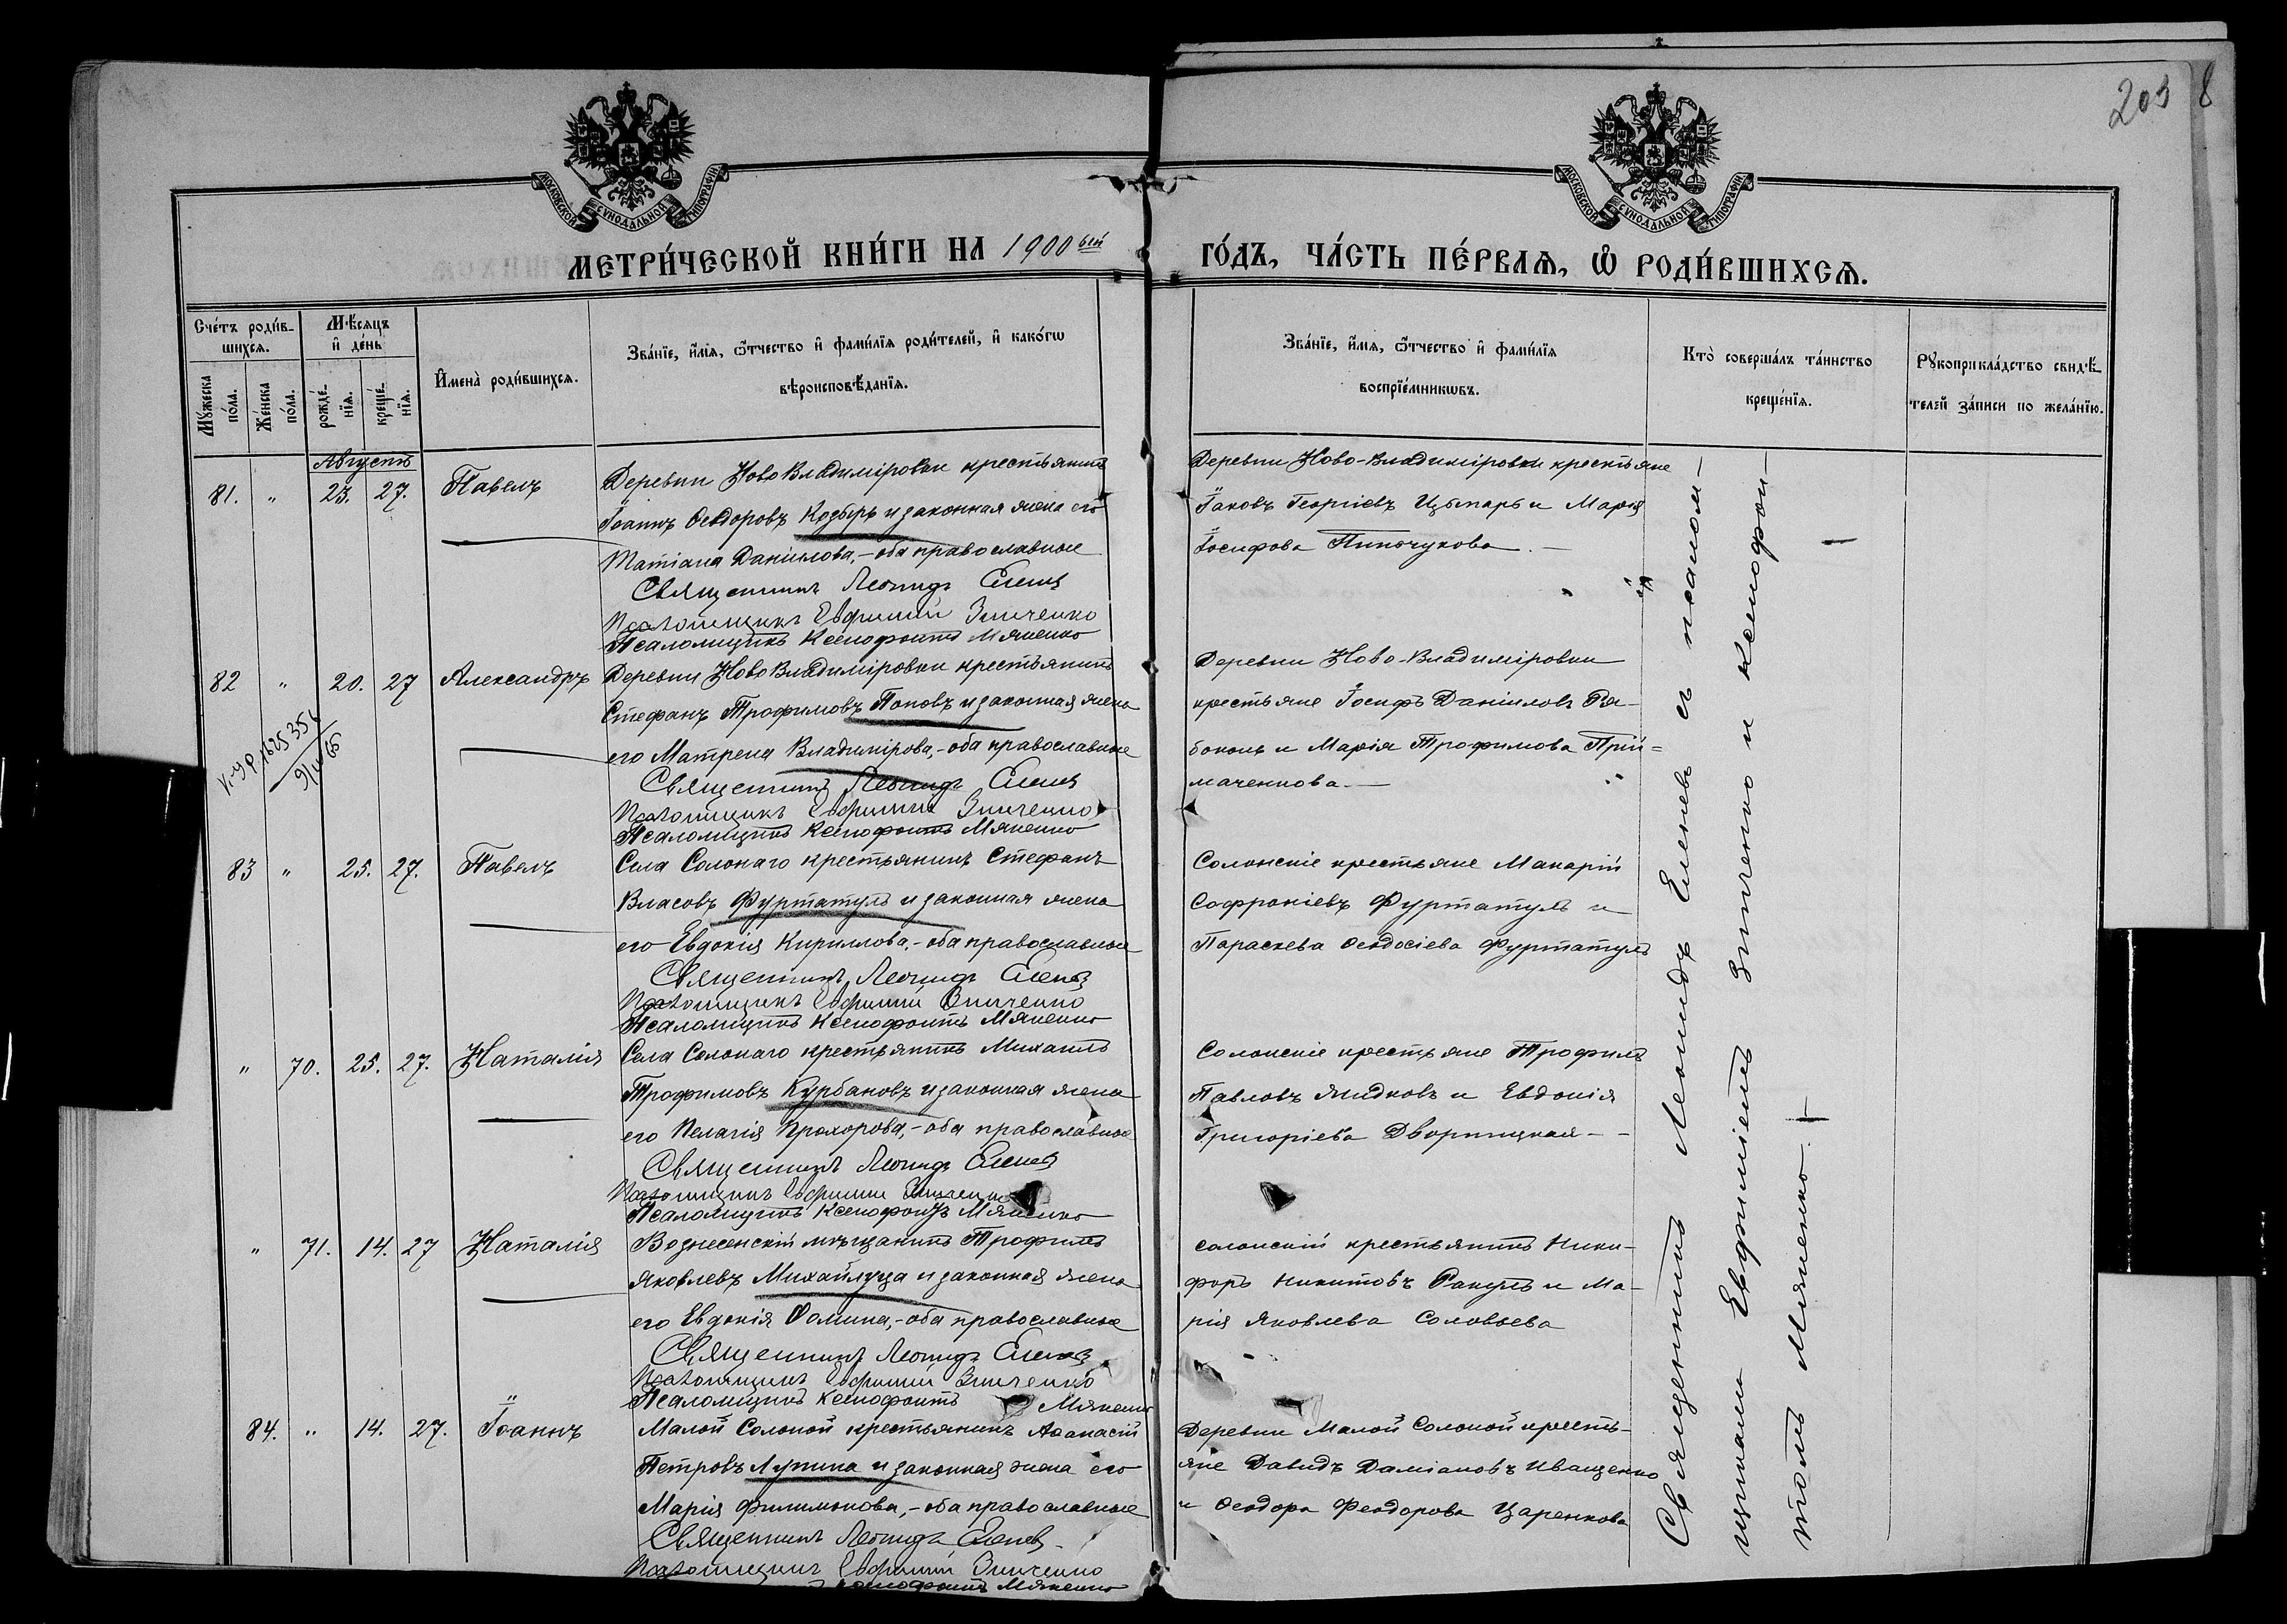 203 8
МОСКОВСКОЙ СѴНОДАЛЬНОЙ ТИПОГРАФІИ
МОСКОВСКОЙ СѴНОДАЛЬНОЙ ТИПОГРАФІИ
МЕТРИ́ЧЕСКОЙ КНИ́ГИ НА 1900ый ГО́ДЪ, ЧА́СТЬ ПЕ́РВАѦ, Ѡ РОДИ́ВШИХСѦ.
Сче́тъ роди́в-
шихсѧ.
Мꙋ́жеска по́ла.
Же́нска по́ла.
Мѣ́сѧцъ и҆ де́нь
рожде́-нїѧ.
креще́-нїѧ.
И҆мена̀ роди́вшихсѧ.
Зва́нїе, и҆́мѧ, ѻ҆́тчество и҆ фами́лїѧ роди́телей, и҆ како́гѡ
вѣроисповѣ́данїѧ.
Зва́нїе, и҆́мѧ, ѻ҆́тчество и҆ фами́лїѧ
воспрїе́мникѡвъ.
Кто̀ соверша́лъ та́инство
креще́нїѧ.
Рꙋкоприкла́дство свидѣ́-
телей за́писи по жела́нїю.
Августъ
81. " 23. 27. Павелъ
Деревни Ново Владиміровки крестьянинъ
Іоаннъ Ѳеодоровъ Козырь и законная жена его
Татіана Даніилова,- оба православные
Священникъ Леонидъ Еленевъ
Псаломщикъ Евфимій Зинченко
Псаломщикъ Ксенофонтъ Мяненко
Деревни Ново-Владиміровки крестьяне
Іаковъ Георгіевъ Цымарь и Марія
Іосифова Пинчукова.-
82 " 20. 27 Александръ
Деревни Ново Владиміровки крестьянинъ
Стефанъ Трофимовъ Поповъ и законная жена
его Матрена Владимірова,- оба православные
Священникъ Леонидъ Еленевъ
Псаломщикъ Евфимій Зинченко
Псаломщикъ Ксенофонтъ Мяненко
Деревни Ново-Владиміровки
крестьяне Іосифъ Даніиловъ Ря-
боконь и Марія Трофимова Прій-
маченкова.-
83 " 25. 27. Павелъ
Села Солонаго крестьянинъ Стефанъ
Власовъ Фуртатулъ и законная жена
его Евдокія Кириллова,- оба православные
Священникъ Леонидъ Еленевъ
Псаломщикъ Евфимій Зинченко
Псаломщикъ Ксенофонтъ Мяненко
Солонскіе крестьяне Макарій
Софроніевъ Фуртатулъ и
Параскева Ѳеодосіева Фуртатулъ
" 70. 25. 27. Наталія
Села Солонаго крестьянинъ Михаилъ
Трофимовъ Курбановъ и законная жена
его Пелагія Прохорова,- оба православные
Священникъ Леонидъ Еленевъ
Псаломщикъ Евфимій Зинченко
Псаломщикъ Ксенофонтъ Мяненко
Солонскіе крестьяне Трофимъ
Павловъ Жидковъ и Евдокія
Григоріева Дворницкая - -
" 71. 14. 27 Наталія
Вознесенскій мѣщанинъ Трофимъ
Яковлевъ Михайлуца и законная жена
его Евдокія Ѳомина,- оба православные
Священникъ Леонидъ Еленевъ
Псаломщикъ Евфимій Зинченко
Псаломщикъ Ксенофонтъ Мяненко
солонскій крестьянинъ Ники-
форъ Никитовъ Ракулъ и Ма-
рія Яковлева Соловьева
84. " 14. 27. Іоаннъ
Малой Солоной крестьянинъ Аѳанасій
Петровъ Лупина и законная жена его
Марія Филимонова,- оба православные
Священникъ Леонидъ Еленевъ
Псаломщикъ Евфимій Зинченко
Ксенофонтъ Мяненко
Деревни Малой Солоной кресть-
яне Давидъ Даміановъ Иващенко
и Ѳеодора Феодорова Царенкова
Священникъ Леонидъ Еленевъ съ псалом-
щиками Евфиміемъ Зинченко и Ксенофон-
томъ Мяненко.